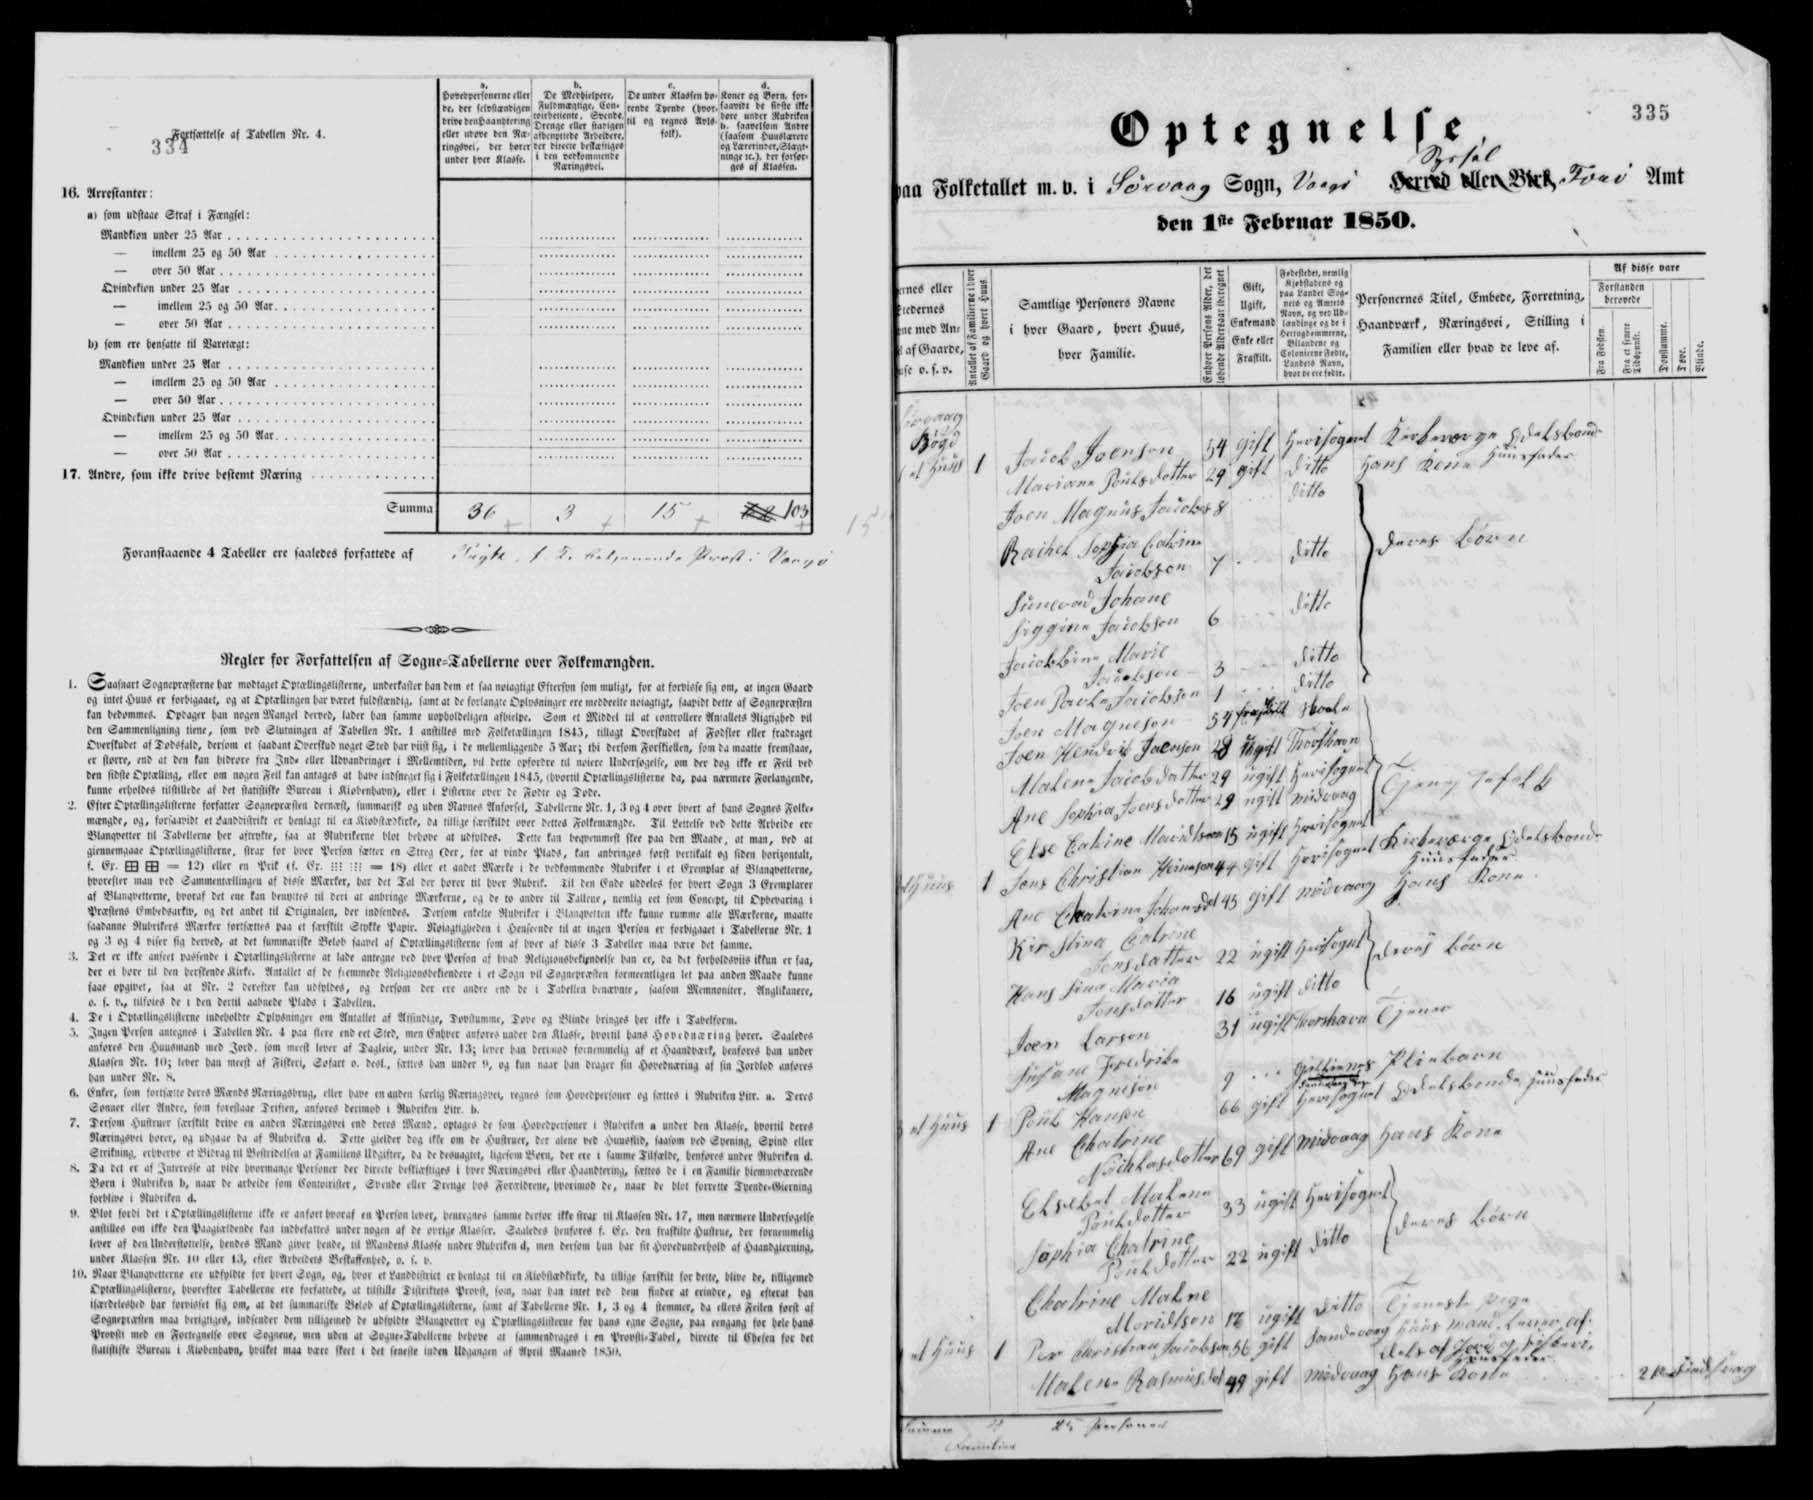 334
Fortsættelse af Tabellen Nr. 4.
a.
Hovedpersonerne eller
de, der selvstændigen
drive den Haandtering
eller udøve den Næ-
ringsvei, der hører
under hver Klasse.
b.
De Medhielpere,
Fuldmægtige, Con-
toirbetiente, Svende,
Drenge eller stadigen
afbenyttede Arbeidere,
der directe beskæftiges
i den vedkommende
Næringsvei.
c.
De under Klassen hø-
rende Tyende (hvor-
til og regnes Avls-
folk).
d.
Koner og Børn, for-
saavidt de første ikke
høre under Rubriken
b. saavelsom Andre
(saasom Huuslærere
og Lærerinder, Slægt-
ninge ɛc.), der forsør-
ges af Klassen.
16. Arrestanter:
a) som udstaae Straf i Fængsel:
Mandkiøn under 25 Aar
— imellem 25 og 50 Aar
— over 50 Aar
Qvindekiøn under 25 Aar
— imellem 25 og 50 Aar
— over 50 Aar
b) som ere hensatte til Varetægt:
Mandkiøn under 25 Aar
— imellem 25 og 50 Aar
— over 50 Aar
Qvindekiøn under 25 Aar
— imellem 25 og 50 Aar
— over 50 Aar
17. Andre, som ikke drive bestemt Næring
Summa 36 3 15 103
Foranstaaende 4 Tabeller ere saaledes forfattede af
Regler for Forfattelsen af Sogne-Tabellerne over Folkemængden.
1. Saasnart Sognepræsterne har modtaget Optællingslisterne, underkaster han dem et saa nøiagtigt Eftersyn som muligt, for at forvisse sig om, at ingen Gaard
og intet Huus er forbigaaet, og at Optællingen har været fuldstændig, samt at de forlangte Oplysninger ere meddeelte nøiagtigt, saavidt dette af Sognepræsten
kan bedømmes. Opdager han nogen Mangel derved, lader han samme uopholdeligen afhielpe. Som et Middel til at controllere Antallets Rigtighed vil
den Sammenligning tiene, som ved Slutningen af Tabellen Nr. 1 anstilles med Folketællingen 1845, tillagt Overskudet af Fødsler eller fradraget
Overskudet af Dødsfald, dersom et saadant Overskud noget Sted har viist sig, i de mellemliggende 5 Aar; thi dersom Forskiellen, som da maatte fremstaae,
er større, end at den kan hidrøre fra Ind- eller Udvandringer i Mellemtiden, vil dette opfordre til nøiere Undersøgelse, om der dog ikke er Feil ved
den sidste Optælling, eller om nogen Feil kan antages at have indsneget sig i Folketællingen 1845, (hvortil Optællingslisterne da, paa nærmere Forlangende,
kunne erholdes tilstillede af det statistiske Bureau i Kiøbenhavn), eller i Listerne over de Fødte og Døde.
2. Efter Optællingslisterne forfatter Sognepræsten dernæst, summarisk og uden Navnes Anførsel, Tabellerne Nr. 1, 3 og 4 over hvert af hans Sognes Folke-
mængde, og, forsaavidt et Landdistrikt er henlagt til en Kiøbstædkirke, da tillige særskilt over dettes Folkemængde. Til Lettelse ved dette Arbeide ere
Blanqvetter til Tabellerne her aftrykte, saa at Rubrikerne blot behøve at udfyldes. Dette kan beqvemmest skee paa den Maade, at man, ved at
giennemgaae Optællingslisterne, strax for hver Person sætter en Streg (der, for at vinde Plads, kan anbringes først vertikalt og siden horizontalt,
f. Ex. = 12) eller en Prik (f. Ex. = 18) eller et andet Mærke i de vedkommende Rubriker i et Exemplar af Blanqvetterne,
hvorefter man ved Sammentællingen af disse Mærker, har det Tal der hører til hver Rubrik. Til den Ende uddeles for hvert Sogn 3 Exemplarer
af Blanqvetterne, hvoraf det ene kan benyttes til deri at anbringe Mærkerne, og de to andre til Tallene, nemlig eet som Concept, til Opbevaring i
Præstens Embedsarkiv, og det andet til Originalen, der indsendes. Dersom enkelte Rubriker i Blanqvetten ikke kunne rumme alle Mærkerne, maatte
saadanne Rubrikers Mærker fortsættes paa et særskilt Stykke Papir. Nøiagtigheden i Henseende til at ingen Person er forbigaaet i Tabellerne Nr. 1
og 3 og 4 viser sig derved, at det summariske Beløb saavel af Optællingslisterne som af hver af disse 3 Tabeller maa være det samme.
3. Det er ikke anseet passende i Optællingslisterne at lade antegne ved hver Person af hvad Religionsbekiendelse han er, da det forholdsviis ikkun er faa,
der ei høre til den herskende Kirke. Antallet af de fremmede Religionsbekiendere i et Sogn vil Sognepræsten formeentligen let paa anden Maade kunne
faae opgivet, saa at Nr. 2 derefter kan udfyldes, og dersom der ere andre end de i Tabellen benævnte, saasom Memnoniter, Anglikanere,
o. s. v., tilføies de i den dertil aabnede Plads i Tabellen.
4. De i Optællingslisterne indeholdte Oplysninger om Antallet af Afsindige, Døvstumme, Døve og Blinde bringes her ikke i Tabelform.
5. Ingen Person antegnes i Tabellen Nr. 4 paa flere end eet Sted, men Enhver anføres under den Klasse, hvortil hans Hovednæring hører. Saaledes
anføres den Huusmand med Jord, som meest lever af Dagleie, under Nr. 13; lever han derimod fornemmelig af et Haandværk, henføres han under
Klassen Nr. 10; lever han meest af Fiskeri, Søfart o. desl., sættes han under 9, og kun naar han drager sin Hovednæring af sin Jordlod anføres
han under Nr. 8.
6. Enker, som fortsætte deres Mænds Næringsbrug, eller have en anden særlig Næringsvei, regnes som Hovedpersoner og sættes i Rubriken Litr. a. Deres
Sønner eller Andre, som forestaae Driften, anføres derimod i Rubriken Litr. b.
7. Dersom Hustruer særskilt drive en anden Næringsvei end deres Mænd, optages de som Hovedpersoner i Rubriken a under den Klasse, hvortil deres
Næringsvei hører, og udgaae da af Rubriken d. Dette gielder dog ikke om de Hustruer, der alene ved Huusflid, saasom ved Spening, Spind eller
Strikning, erhverve et Bidrag til Bestridelsen af Familiens Udgifter, da de desuagtet, ligesom Børn, der ere i samme Tilfælde, henføres under Rubriken d.
8. Da det er af Interesse at vide hvormange Personer der directe beskiæftiges i hver Næringsvei eller Haandtering, sættes de i en Familie hiemmeværende
Børn i Rubriken b, naar de arbeide som Contoirister, Svende eller Drenge hos Forældrene, hvorimod de, naar de blot forrette Tyende-Gierning
forblive i Rubriken d.
9. Blot fordi det i Optællingslisterne ikke er anført hvoraf en Person lever, henregnes samme derfor ikke strax til Klassen Nr. 17, men nærmere Undersøgelse
anstilles om ikke den Paagiældende kan indbefattes under nogen af de øvrige Klasser. Saaledes henføres f. Ex. den fraskilte Hustrue, der fornemmelig
lever af den Understøttelse, hendes Mand giver hende, til Mandens Klasse under Rubriken d, men dersom hun har sit Hovedunderhold af Haandgierning,
under Klassen Nr. 10 eller 13, efter Arbeidets Beskaffenhed, o. s. v.
10. Naar Blanqvetterne ere udfyldte for hvert Sogn, og, hvor et Landdistrict er henlagt til en Kiøbstædkirke, da tillige særskilt for dette, blive de, tilligemed
Optællingslisterne, hvorefter Tabellerne ere forfattede, at tilstille Distriktets Provst, som, naar han intet ved dem finder at erindre, og efterat han
isærdeleshed har forvisset sig om, at det summariske Beløb af Optællingslisterne, samt af Tabellerne Nr. 1, 3 og 4 stemmer, da ellers Feilen først af
Sognepræsten maa berigtiges, indsender dem tilligemed de udfyldte Blanqvetter og Optællingslisterne for hans egne Sogne, paa eengang for hele hans
Provsti med en Fortegnelse over Sognene, men uden at Sogne-Tabellerne behøve at sammendrages i en Provsti-Tabel, directe til Chefen for det
statistiske Bureau i Kiøbenhavn, hvilket maa være skeet i det seneste inden Udgangen af April Maaned 1850.
335
Optegnelse
Syssel
paa Folketallet m. v. i Sörvaag Sogn, Vaagö Herred eller Birk, Færö Amt
den 1ste Februar 1850.
Antallet af Familierne i hver Gaard og hvert Huus.
Samtlige Personers Navne
i hver Gaard, hvert Huus,
hver Familie.
Enhver Persons Alder, det løbende Aldersaar iberegnet
Gift,
Ugift,
Enkemand
Enke eller
Fraskilt.
Fødestedet, nemlig
Kjøbstadens og
paa Landet Sog-
nets og Amtets
Navn, og ved Ud-
lændinge og de i
Hertugdømmerne,
Bilandene og
Colonierne Fødte,
Landets Navn,
hvor de ere fødte.
Personernes Titel, Embede, Forretning,
Haandværk, Næringsvei, Stilling i
Familien eller hvad de leve af.
Af disse vare
Forstanden
berøvede
Fra Fødslen.
Fra et senere Tidspunkt.
Døvstumme.
Døve.
Blinde.
Sörvaag
Bögd
1 et Huus 1 Jacob Joensen 54 gift Heri Sognet Kirkeværge Odelsbonde
Huusfader
Mariane Poulsdatter 29 gift ditto Hans Kone
Joen Magnus Jacobs 8 ditto
Rachel Sophia Catrine
Jacobsen 7 ditto deres Börn
Sunevad Johane
Siggine Jacobsen 6 ditto
Jacobbine Marie
Jacobsen 3 ditto
Joen Pavle Jacobsen 1 ditto
Joen Magnesen 54 fraskilt
Joen Hendrik Joensen 28 ugift Thorshavn
Malene Jacobsdatter 29 ugift Heri Sognet
Ane Sophia Joensdatter 29 ugift Midvaag
Else Catrine 15 ugift Heri Sognet
et Huus 1 Jens Christian Heinesen 44 gift Heri Sognet Kirkeværge Odelsbonde
Huusfader
Ane Chatrine Johansdt 45 gift Midvaag Hans Kone
Kirstina Catrine
Jensdatter 22 ugift Heri Sognet deres Börn
Hans Sina Maria
Jensdatter 16 ugift ditto
Joen Larsen 31 ugift Thorshavn Tjener
Susane Fredrika
Magnesen 9 Pleiebarn
et Huus 1 Poul Hansen 66 gift Heri Sognet Odelsbonde Huusfader
Ane Chatrine
69 gift Midvaag Hans Kone
Elsebet Malene
Poulsdatter 33 ugift Heri Sognet deres Börn
Sophia Chatrine
Poulsdatter 22 ugift ditto
Chatrine Malene
ugift ditto Tjeneste Pige
et Huus 1 Per Christian Jacobsen 56 gift Sandevaag Huusmand, Lever af
dels af Jord og Fiskeri,
Huusfader
Malene Rasmusdt 49 gift Midvaag Hans Kone
Summa 4
Familier
25 Personer